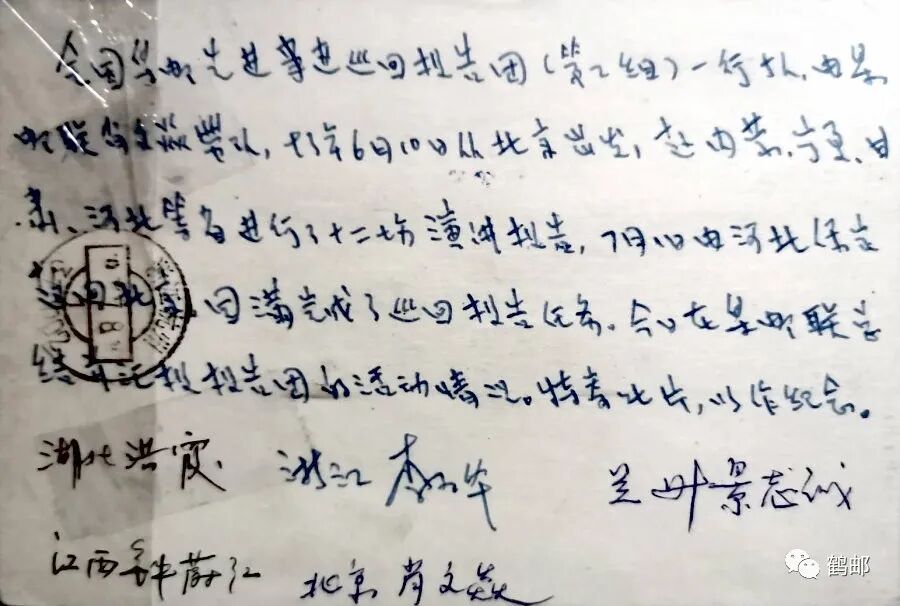 全国集邮先进事迹巡回报告团(第二组)一行，由全
邮联肖文燚带队，6月10日从北京出发，赴内蒙、宁夏、甘
肃、河北等省进行了十二场演讲报告，7月1日由河北保定
回北京，圆满完成了巡回报告任务。今日在全邮联总
结汇报报告团的活动情况。特寄此片，以作纪念。
湖北 洪霞 浙江 李 华 兰州 景志诚
江西 江 北京 肖文燚
鹤邮